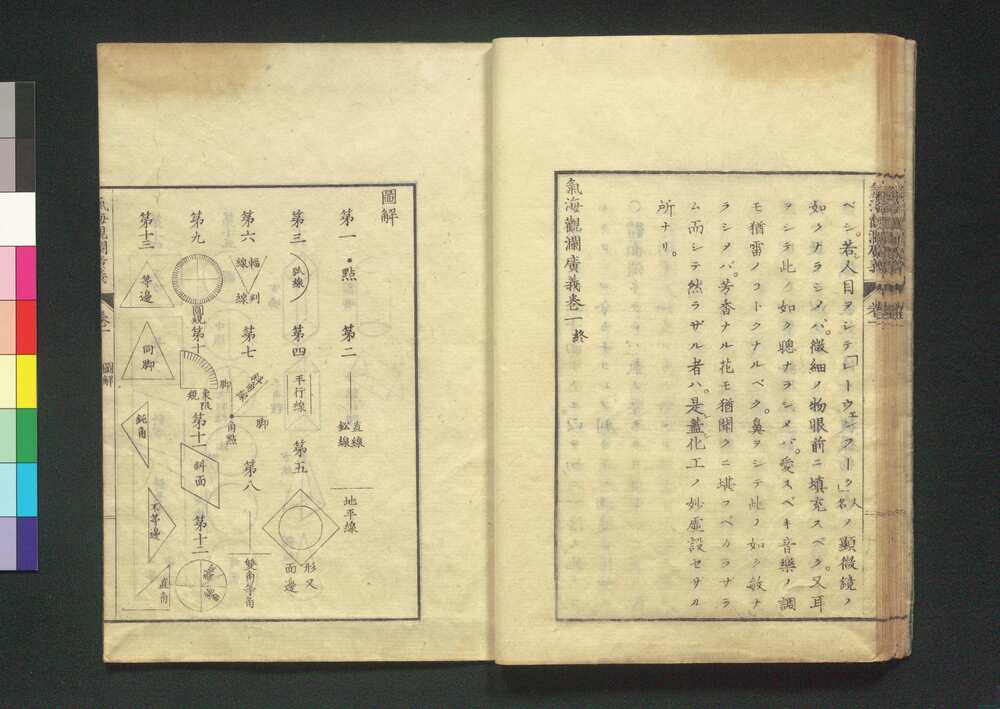 ベシ。若人目ヲシテ「レーウェンフーク」人名ノ顯微鏡ノ
如クナラシメバ。微細ノ物眼前ニ填充スベク。又耳
ヲシテ此ノ如ク聰ナラシメバ。愛スベキ音樂ノ調
モ猶雷ノコトクナルベク。鼻ヲシテ此ノ如ク敏ナ
ラシメバ。芳香ナル花モ猶聞クニ堪フベカラザラ
ム而シテ然ラザル者ハ。是蓋化工ノ妙虚設セサル
所ナリ。
氣海觀瀾廣義卷一 終
圖解
第一 點
第二 直線 鉛線 地平線
第三 弧線
第四 平行線
第五 形又 面邊
第六 輻線 割線
第七 脚 脚 角點
第八 雙角等角
第九 圓規
第十 象限 規
第十一 斜面
第十二
第十三 等邊
同脚
鈍角
不等邊
直角
卷一 圖解